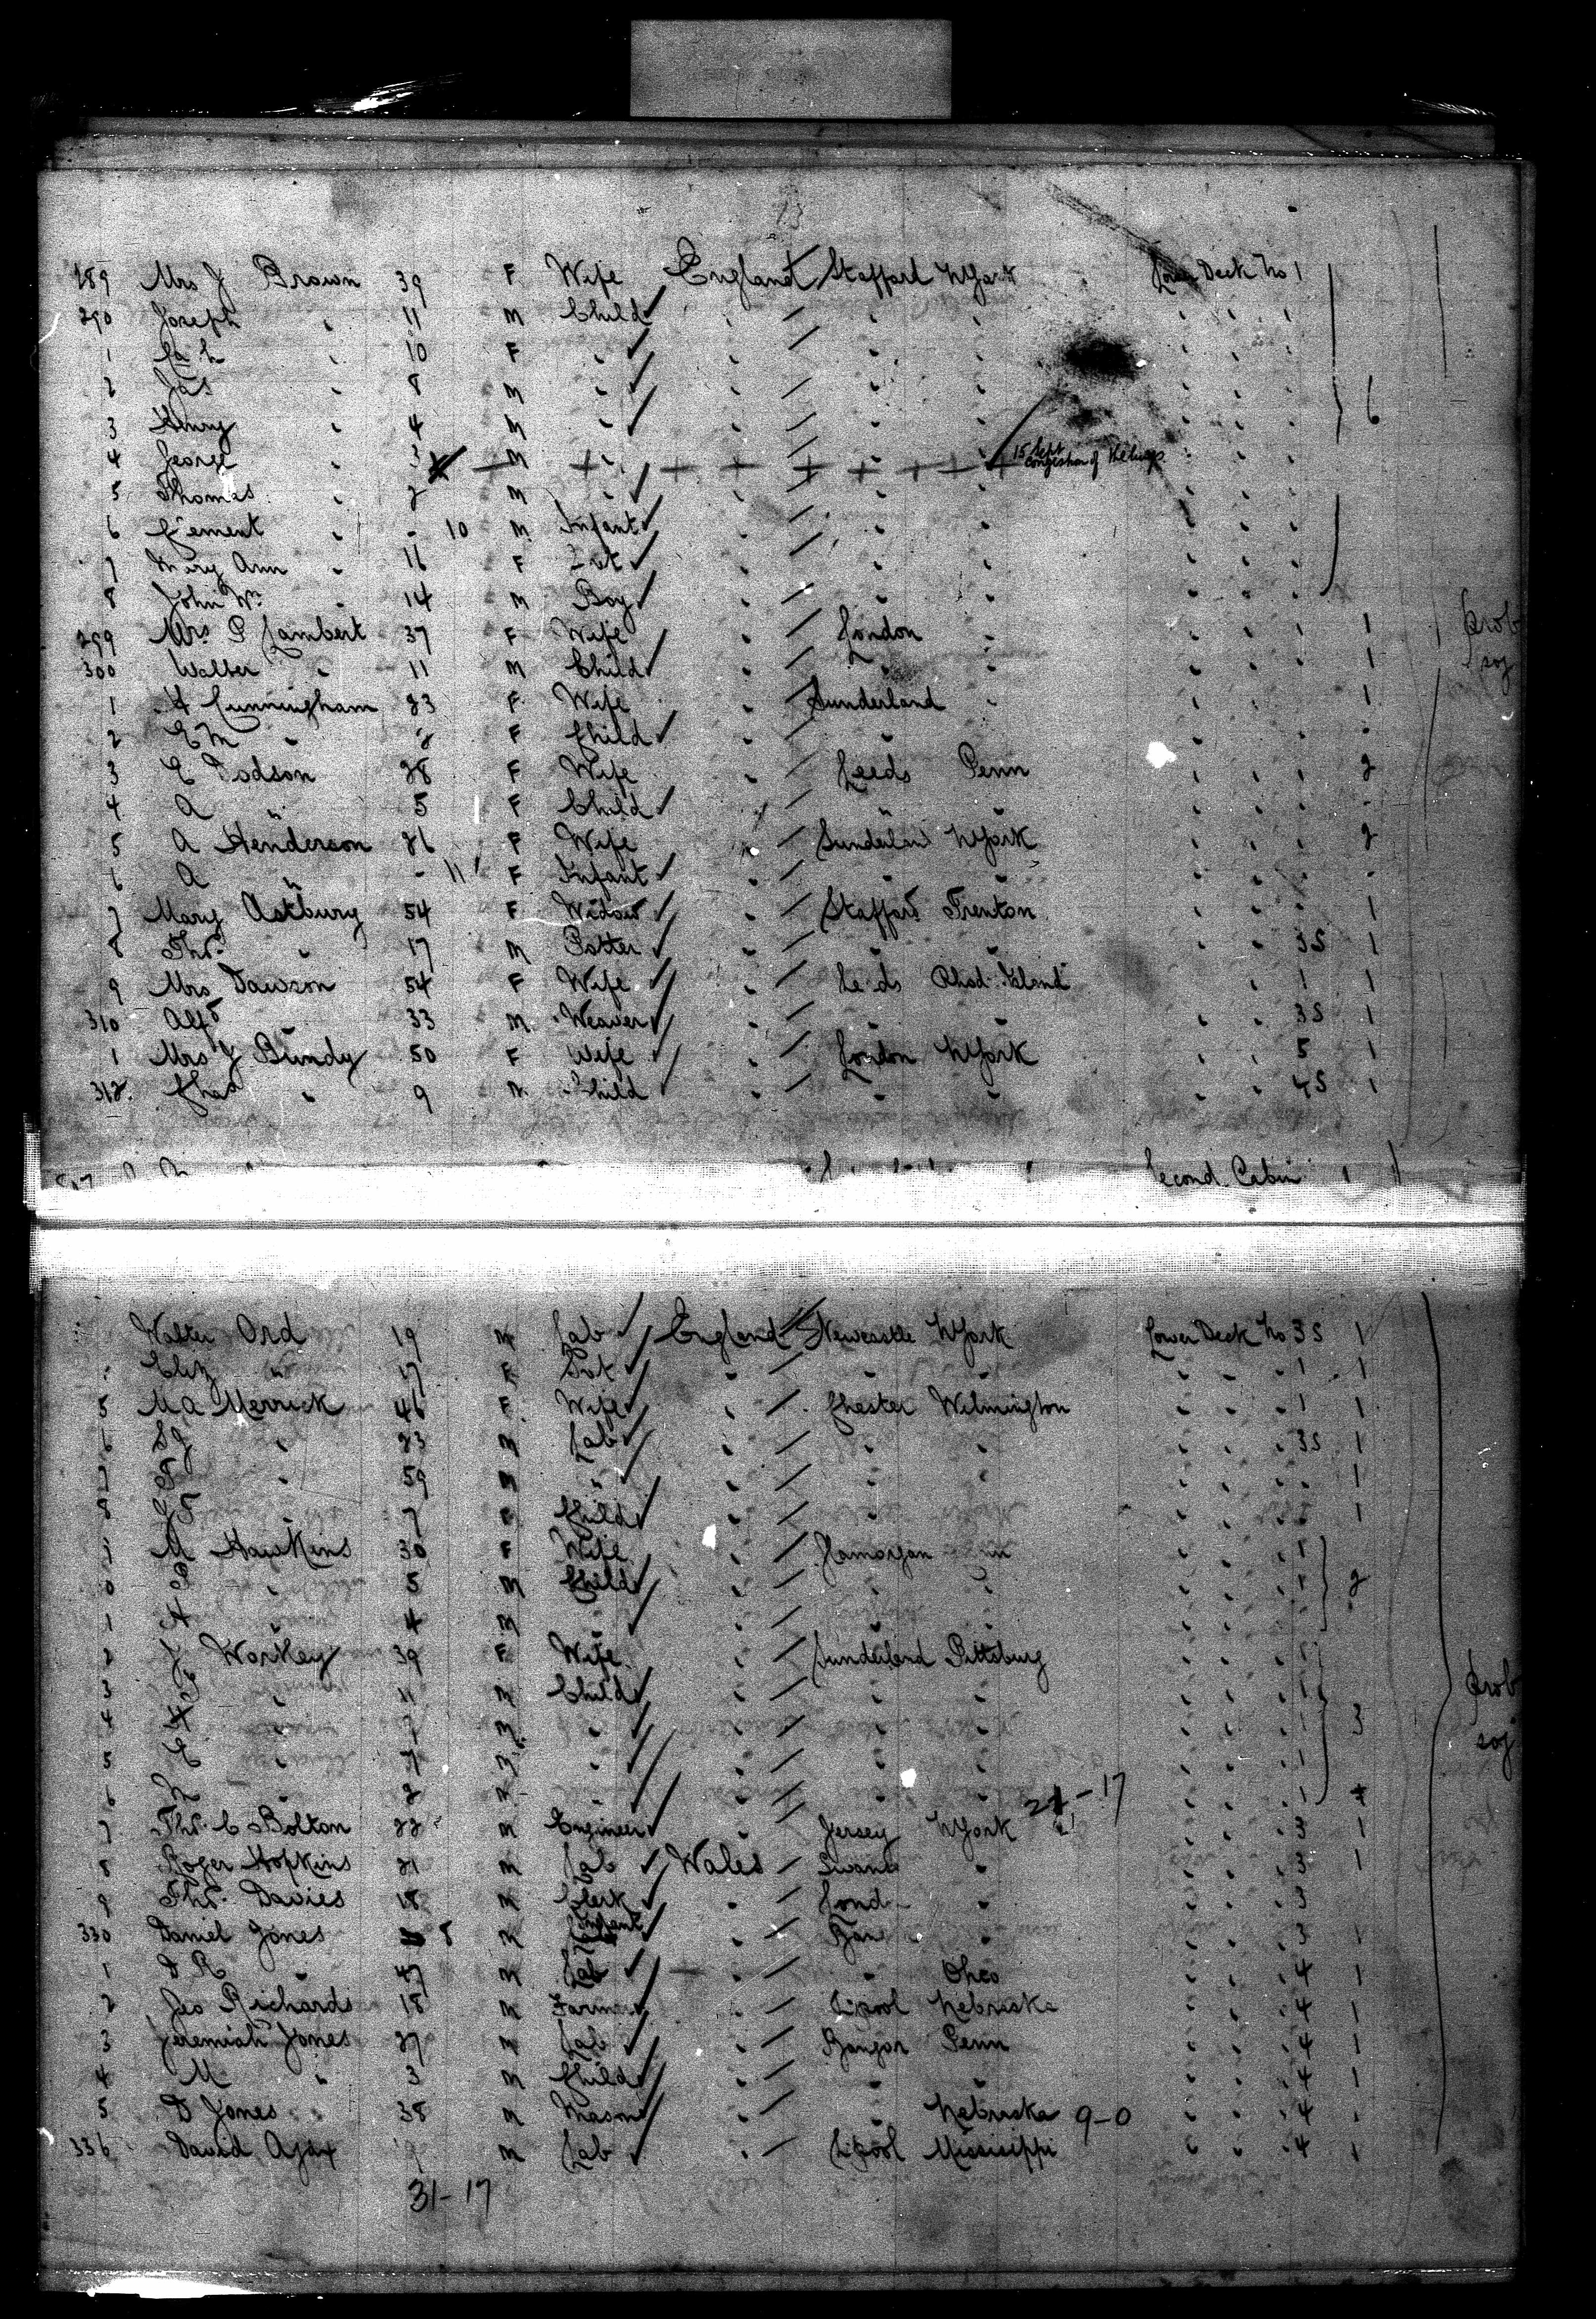 13
289 Mrs J Brown 39 F Wife England Stafford NYork Lower Deck No 1
290 Joseph " 11 M Child " " " " " "
1 " 10 F " " " " " " "
2 Jas " 8 M " " " " " " "
3 Henry " 4 M " " " " " " " 6
4 George " 3 M " " " " 15 Sept congestion of the lungs " " "
5 Thomas " 2 M " " " " " " "
6 Clement " - 10 M Infant " " " " " "
7 Mary Ann " 16 F " " " " " "
8 John Wm " 14 M Boy " " " " " "
299 Mrs P Lambert 37 F Wife " London " " " 1 1 prob
300 Walter " 11 M Child " " " " " " 1 soj
1 H Cunningham 23 F Wife " Sunderland " " " 1 1
2 E M " 2 F Child " " " " "
3 E Dodson 28 F Wife " Leeds Penn " " 1 2
4 A " 5 F Child " " " " " "
5 A Henderson 26 F Wife " Sunderland NYork " " " 2
6 A " - 11 F Infant " " " " " "
7 Mary Astbury 54 F Widow " Stafford Trenton " " " 1
8 Thos. " 17 M Potter " " " " " 3S 1
9 Mrs Dawson 54 F Wife " Leeds Rhod Island " 1 1
310 Alfd " 33 M Weaver " " " " " 3S 1
1 Mrs J Bundy 50 F Wife " London NYork " " 5 1
312 Chas " 9 M Child " " " " " 4S 1
Second Cabin 1
Walter Ord 19 M Lab England Newcastle NYork Lower Deck No 3S 1
Eliz " 17 F " " " " " 1 1
5 M A Merrick 46 F Wife " Chester Wilmington " " 1 1
6 " 23 M Lab " " " " " 3S 1
7 " 59 M " " " " " " " 1
8 " 7 Child " " " " " 1
M Hawkins 30 F Wife " " " 1
0 " 5 M Child " " " " " 1 2
1 " 4 M " " " " " "
2 J Workey 39 F Wife " Sunderland Pittsburg " " 1
3 " 11 M Child " " " " " 1 prob
4 " 7 M " " " " " " 1 3
5 E " 7 M " " " " " " 1 soj
6 " 2 M " " " " 21-17 " " 1
7 Thos. C Bolton 22 M Engineer " Jersey NYork " " 3 1
8 Roger Hopkins 21 M Lab Wales " " " 3 1
9 Thos. Davies 18 M Clerk " " " " 3
330 Daniel Jones 8 M Infant " " " " 3 1
1 D R " 47 M Lab " " Ohio " " 4 1
2 Geo Richards 18 M Farmer Lipool Nebraska " " 4 1
3 Jeremiah Jones 27 M Lab " Bangor Penn " " 4 1
4 M " 3 M Child " " " " " 4 1
5 D Jones 38 M Mason " " Nebraska 9-0 " " 4
336 David Ajax M Lab " Lipool Mississippi " " 4 1
31-17